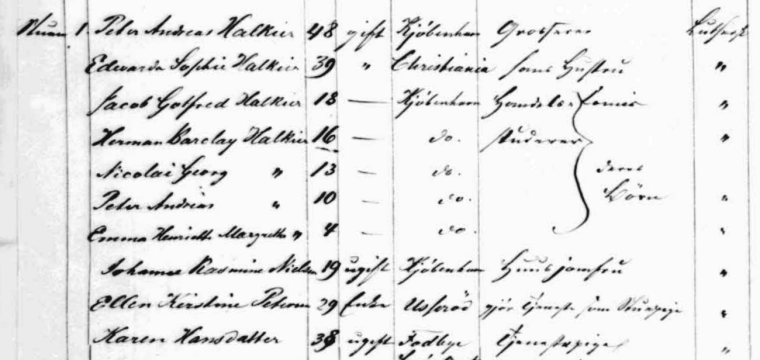 Stuen 1. Peter Andreas Halkier 48 gift Kjöbenhavn Grosserer Luthersk
Edvarda Sophie Halkier 39 " Christiania hans Hustru "
Jacob Gotfred Halkier 18 — Kjöbenhavn Handels comis "
Herman Barclay Halkier 16 — do. studerer "
Nicolai Georg " 13 — do. deres
Peter Andreas " 10 — do. Börn "
Emma Henriette Margrethe " 4 — do. "
Johanne Rasmine Nielsen 19 ugift Kjöbenhavn Huusjomfru "
Ellen Kirstine Petersen 29 Enke Usseröd gjör Tjeneste som Stuepige "
Karen Hansdatter 38 ugift Fodbye Tjenestepige "